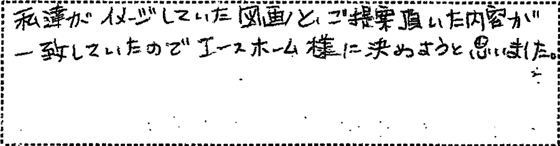 私達がイメージしていた図画と、ご提案頂いた内容が
一致していたのでエースホーム様に決めようと思いました。